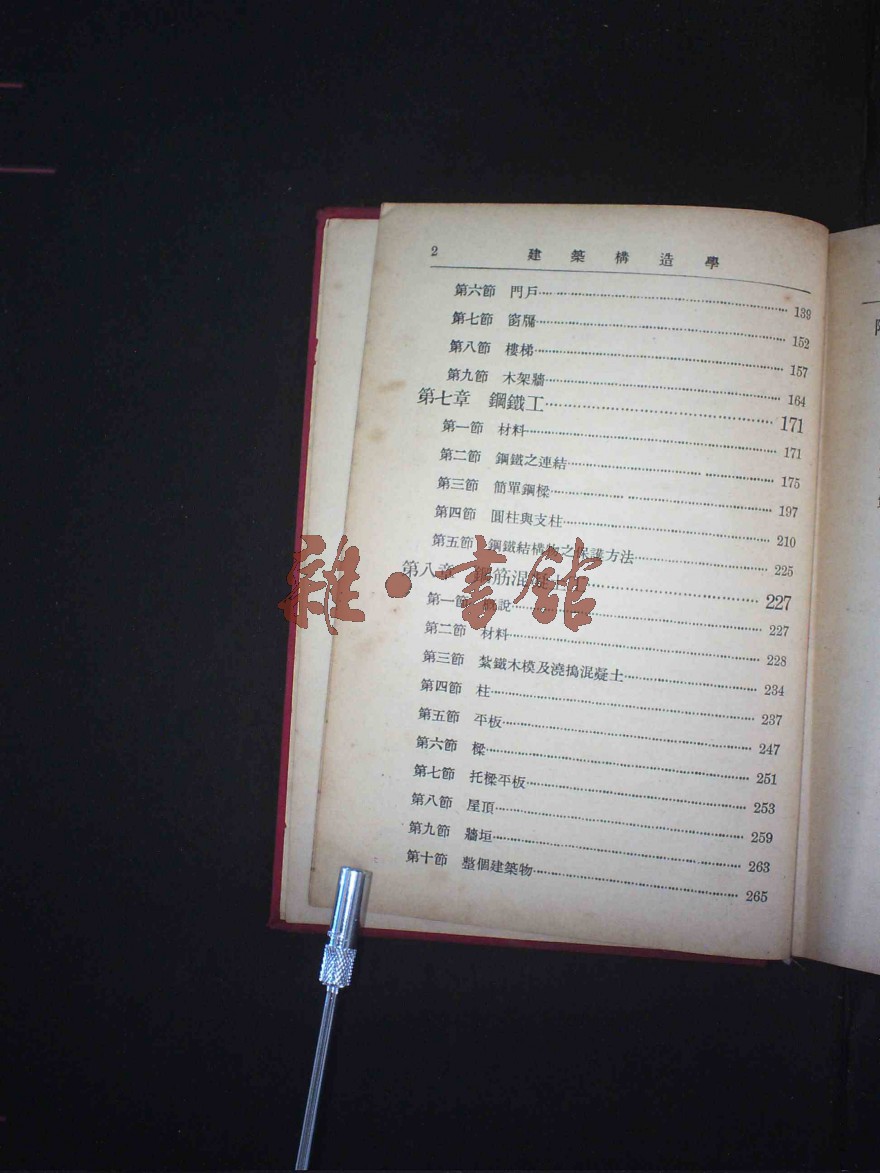 2 建築構造學
第六節 門戶 139
第七節 窗牖 152
第八節 樓梯 157
第九節 木架牆 164
第七章 鋼鐵工 171
第一節 材料 171
第二節 鋼鐵之連結 175
第三節 簡單鋼樑 197
第四節 圓柱與支柱 210
第五節 鋼鐵結構物之保護方法 225
第八章 鋼筋混凝土工 227
第一節 說 227
第二節 材料 228
第三節 紮鐵木模及澆搗混凝土 234
第四節 柱 237
第五節 平板 247
第六節 樑 251
第七節 托樑平板 253
第八節 屋頂 259
第九節 牆垣 263
第十節 整個建築物 265
雜·書館